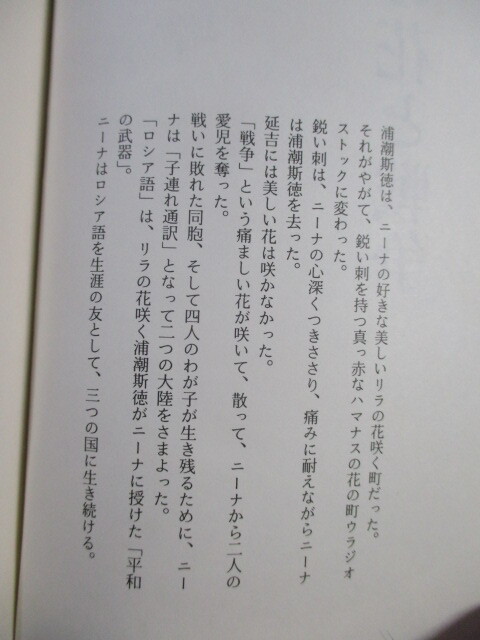 浦潮斯徳は、ニーナの好きな美しいリラの花咲く町だった。
それがやがて、鋭い刺を持つ真っ赤なハマナスの花の町ウラジオ
ストックに変わった。
鋭い刺は、ニーナの心深くつきささり、痛みに耐えながらニーナ
は浦潮斯徳を去った。
延吉には美しい花は咲かなかった。
「戦争」という痛ましい花が咲いて、散って、ニーナから二人の
愛児を奪った。
戦いに敗れた同胞、そして四人のわが子が生き残るために、ニー
ナは「子連れ通訳」となって二つの大陸をさまよった。
「ロシア語」は、リラの花咲く浦潮斯徳がニーナに授けた「平和
の武器」。
ニーナはロシア語を生涯の友として、三つの国に生き続ける。